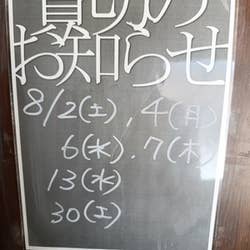 貸切の
お知らせ
8/2(土), 4(月)
6(水). 7(木)
13(水)
30(土)